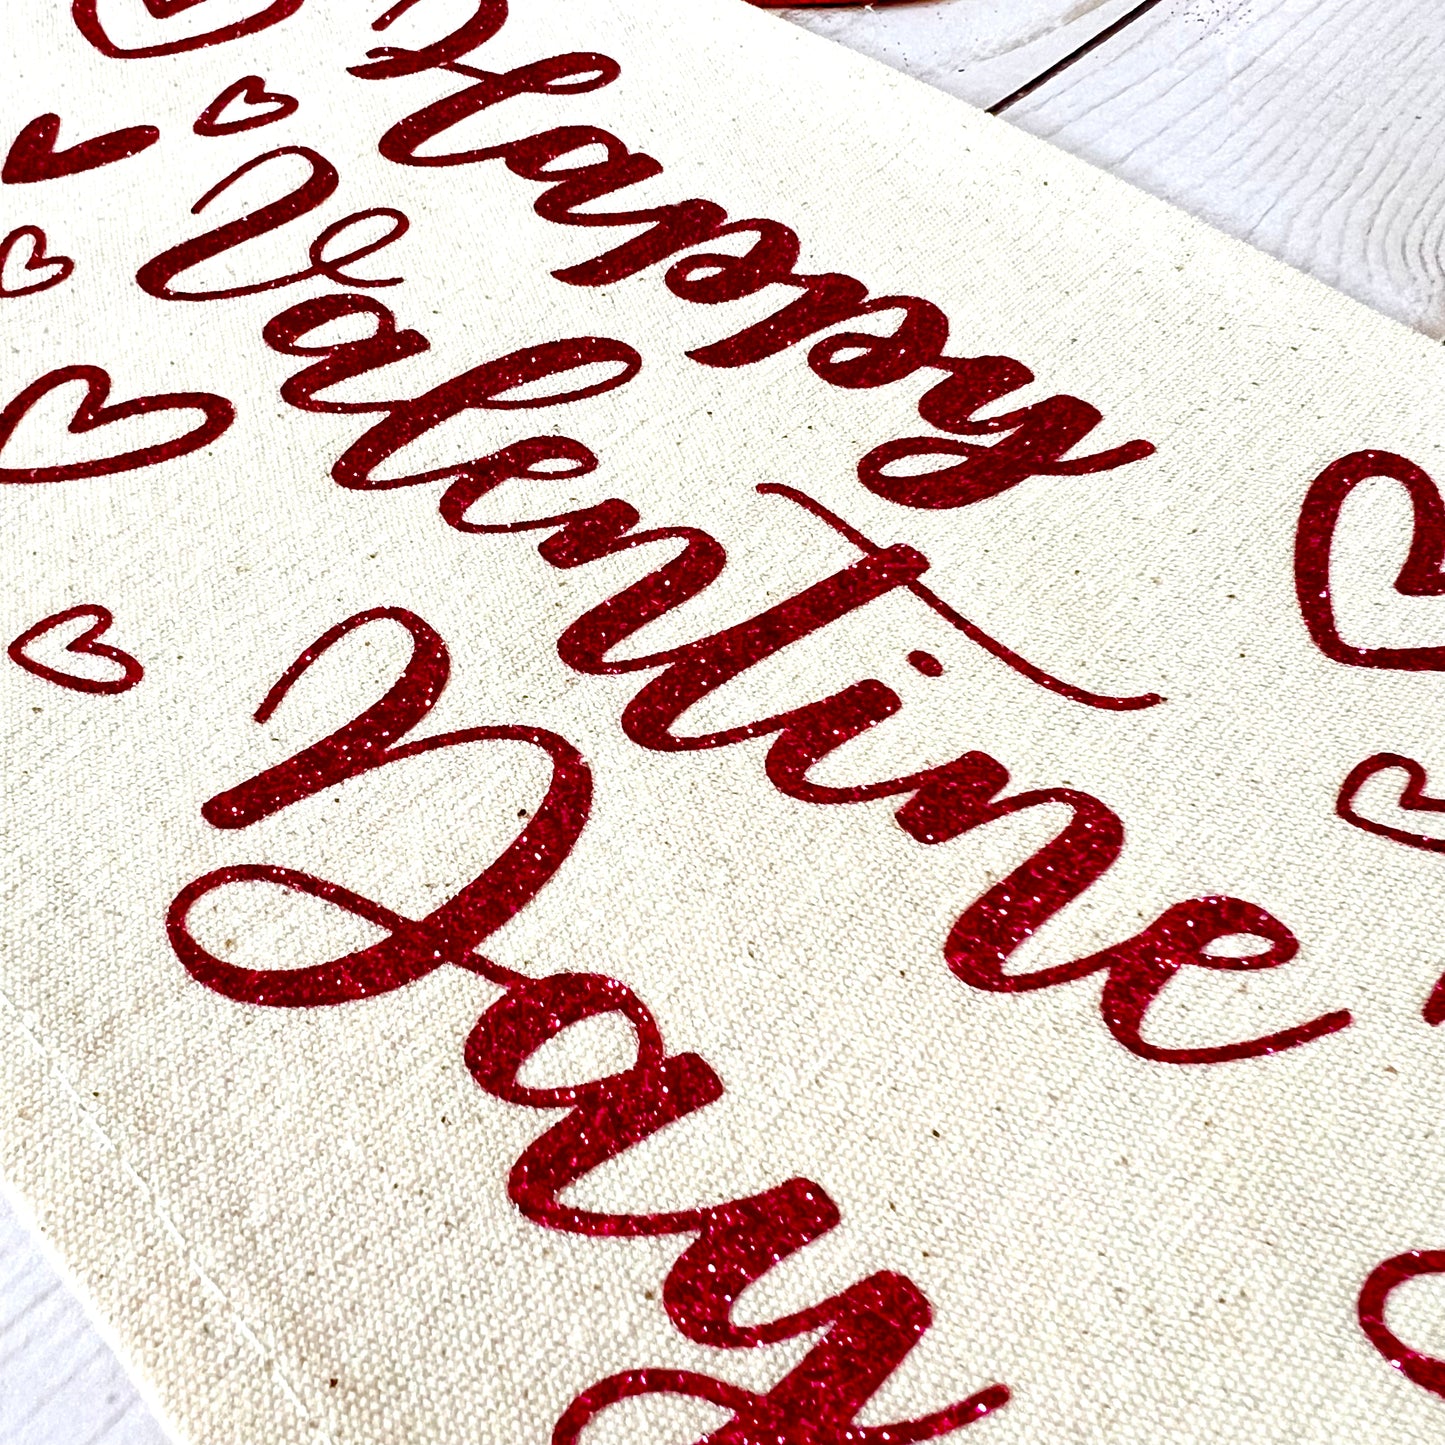 Happy
Valentine
Day